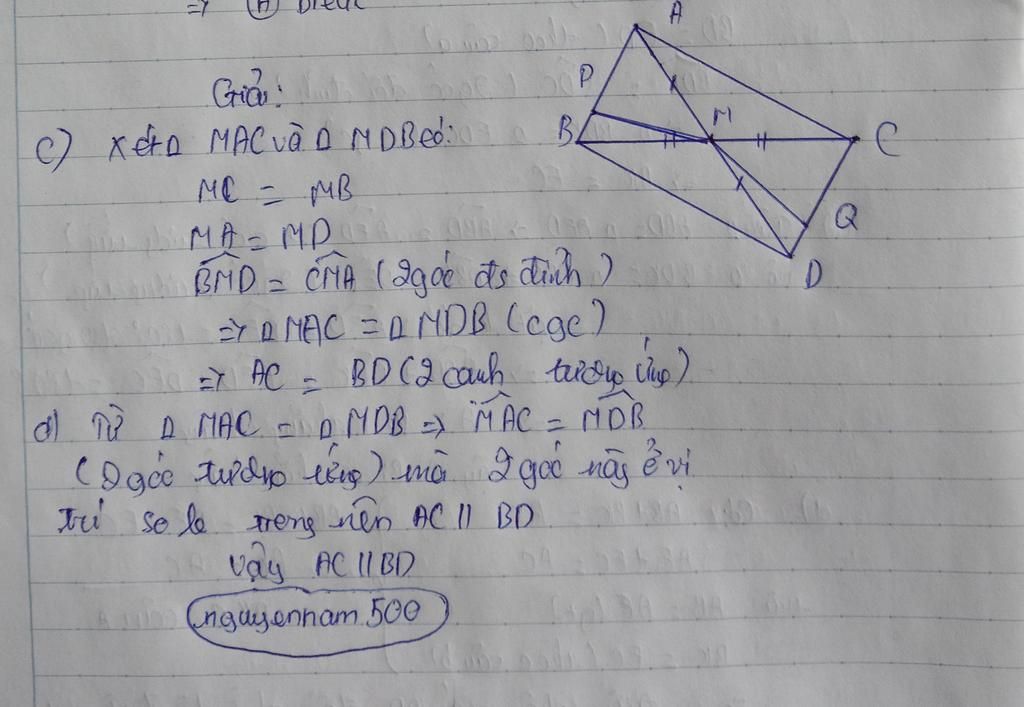 => (A) Điều
Giải:
c) Xét Δ MAC và Δ MDB có:
MC = MB
MA = MD
BMD = CMA (2 góc đs đỉnh)
=> Δ MAC = Δ MDB (cgc)
=> AC = BD (2 cạnh tương ứng)
d) Từ Δ MAC = Δ MDB => MAC = MDB
(2 góc tương ứng) mà 2 góc này ở vị
trí so le trong nên AC || BD
Vậy AC || BD
nguyennam.500
A
P
B
M
C
Q
D